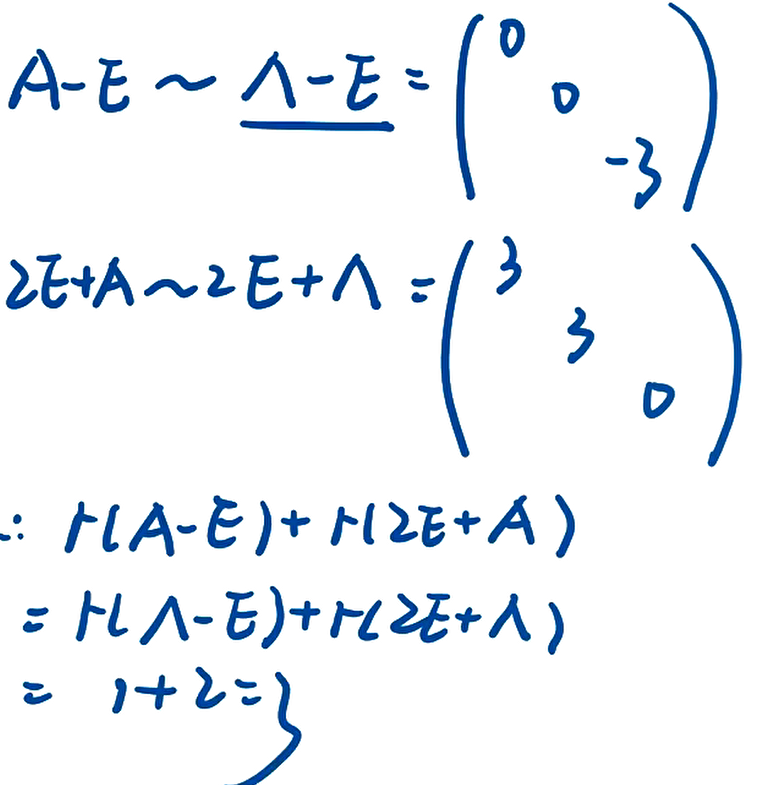 A-E ~ Λ-E = (0 0 -3)
2E+A ~ 2E+Λ = (3 3 0)
∴ r(A-E)+r(2E+A)
= r(Λ-E)+r(2E+Λ)
= 1+2=3